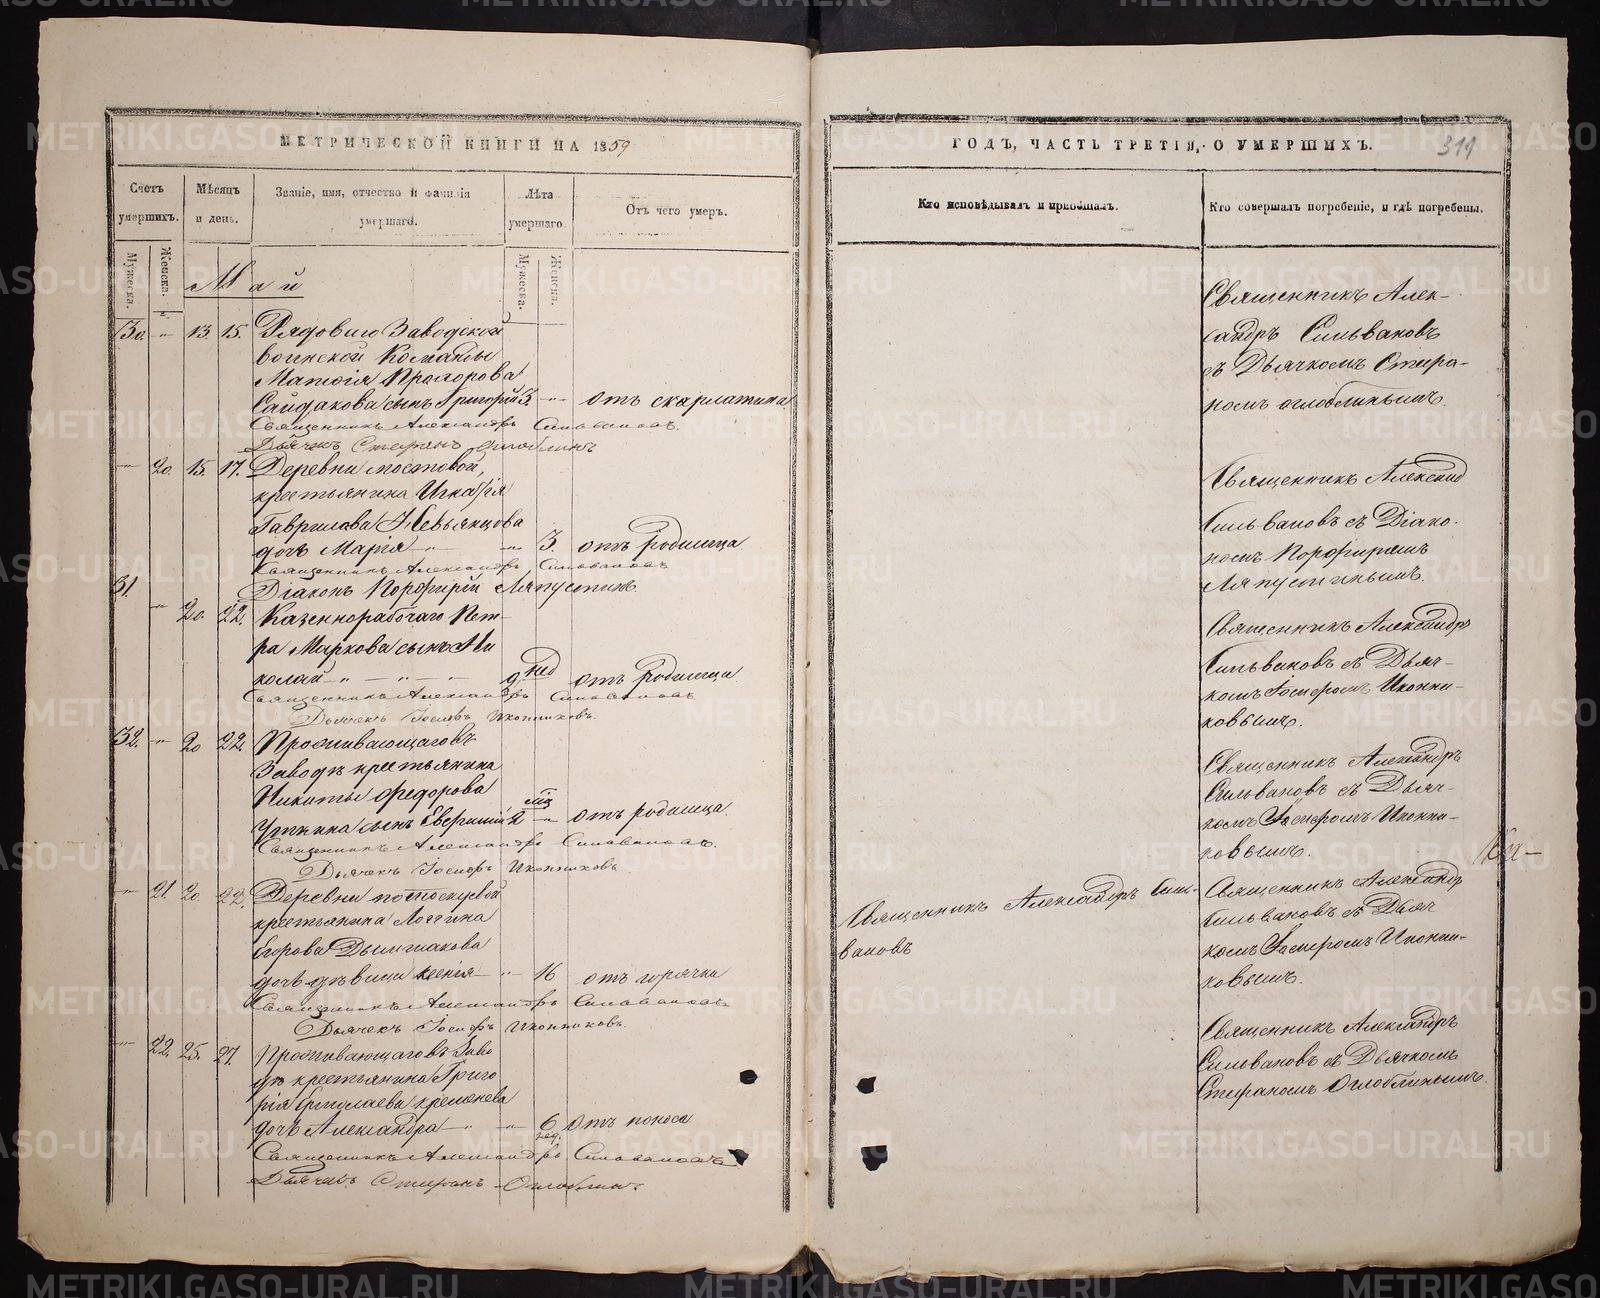 МЕТРИЧЕСКОЙ КНИГИ НА 1859
Счетъ умершихъ.
Мѣсяцъ и день.
Званіе, имя, отчество и фамилія умершаго.
Лѣта умершаго.
Отъ чего умеръ.
Мужеска.
Женска.
Мужеска.
Женска.
Май
30. " 13. 15. Рядоваго Заводской
воинской Команды
Матѳія Прохорова
Сайдакова сынъ Григорій 3. " отъ скарлатина
Священникъ Александръ Сильвановъ.
Дьячекъ Стефанъ Оглоблинъ
" 20. 15. 17. Деревни мостовой,
крестьянина
Гаврилова Невьянцова
дочь Марія " " 3. отъ родимца
Священникъ Александръ Сильвановъ
Діаконъ Порфирій Ляпустинъ.
31. " 20. 22. Казеннорабочаго Пет-
ра Маркова сынъ Ни
колай " 9. нед отъ родимца
Священникъ Александръ Сильвановъ
Дьячекъ Іосифъ Иконниковъ.
32. " 20 22. Проживающаго въ
Заводѣ крестьянина
Никиты Федорова
сынъ 2 мѣ " отъ родимца
Священникъ Александръ Сильвановъ.
Дьячекъ Іосифъ Иконниковъ
" 21. 20. 22. Деревни
крестьянина Логгина
Егорова Дымшакова
дочь дѣвица Ксенія " 16 отъ горячки
Священникъ Александръ Сильвановъ
Дьячекъ Іосифъ Иконниковъ.
" 22. 25. 27. Проживающаго въ Заво
дѣ крестьянина Григо
рія
дочь Александра " " 6 нед. Отъ поноса
Священникъ Александръ Сильвановъ
Дьячекъ Стефанъ Оглоблинъ.
ГОДЪ, ЧАСТЬ ТРЕТІЯ, О УМЕРШИХЪ.
311
Кто исповѣдывалъ и пріобщалъ.
Кто совершалъ погребеніе, и гдѣ погребены.
Священникъ Алек-
сандръ Сильвановъ
съ Дьячкомъ Стефа-
номъ Оглоблинымъ.
Священникъ Александ
Сильвановъ съ Діако-
номъ Порфиремъ
Ляпустинымъ.
Священникъ Александръ
Сильвановъ съ Дьяч-
комъ Іосифомъ Иконни-
ковымъ.
Священникъ Александръ
Сильвановъ съ Дьяч-
комъ Іосифомъ Иконни-
ковымъ.
Священникъ Александръ Силь-
вановъ
Священникъ Александр
Сильвановъ съ Дьяч
комъ Іосифомъ Иконни-
ковымъ.
Священникъ Александръ
Сильвановъ съ Дьячкомъ
Стефаномъ Оглоблинымъ.
METRIKI.GASO-URAL.RU